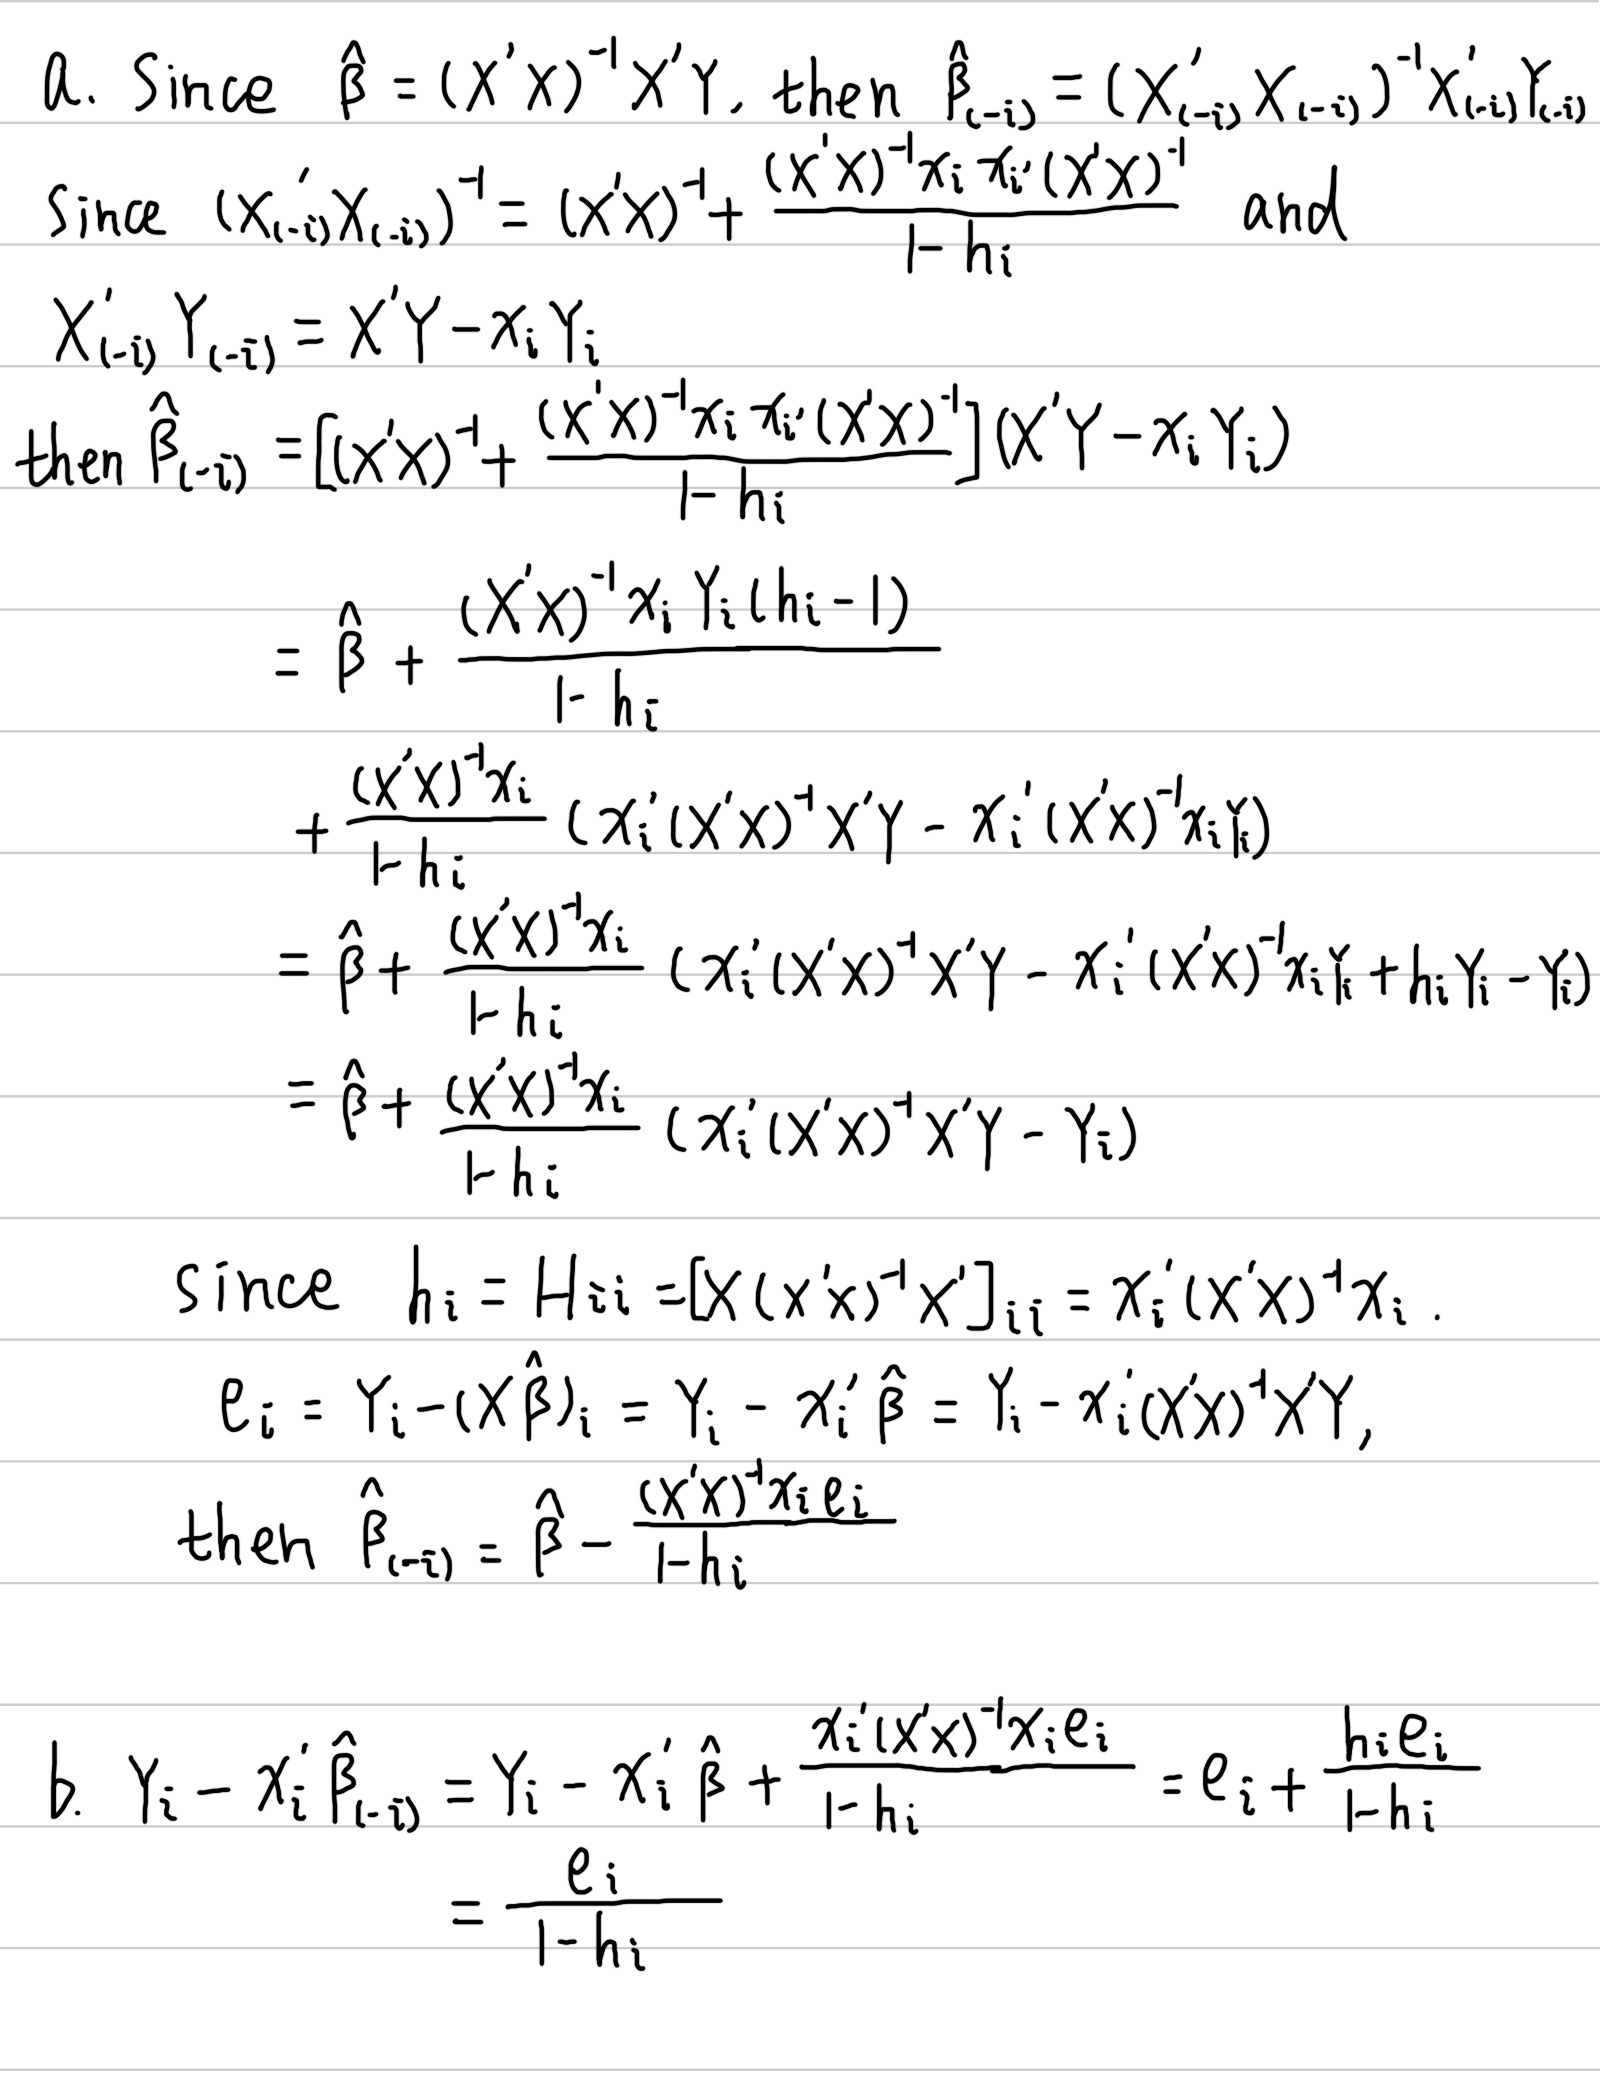 a. Since β̂ = (X'X)⁻¹X'Y, then β̂₍₋ᵢ₎ = (X'₍₋ᵢ₎X₍₋ᵢ₎)⁻¹X'₍₋ᵢ₎Y₍₋ᵢ₎
since (X'₍₋ᵢ₎X₍₋ᵢ₎)⁻¹ = (X'X)⁻¹ + \frac{(X'X)⁻¹xᵢxᵢ'(X'X)⁻¹}{1-hᵢ} and
X'₍₋ᵢ₎Y₍₋ᵢ₎ = X'Y - xᵢYᵢ
then β̂₍₋ᵢ₎ = [(X'X)⁻¹ + \frac{(X'X)⁻¹xᵢxᵢ'(X'X)⁻¹}{1-hᵢ}](X'Y - xᵢYᵢ)
= β̂ + \frac{(X'X)⁻¹xᵢYᵢ(hᵢ-1)}{1-hᵢ}
+ \frac{(X'X)⁻¹xᵢ}{1-hᵢ} (xᵢ'(X'X)⁻¹X'Y - xᵢ'(X'X)⁻¹xᵢYᵢ)
= β̂ + \frac{(X'X)⁻¹xᵢ}{1-hᵢ} (xᵢ'(X'X)⁻¹X'Y - xᵢ'(X'X)⁻¹xᵢYᵢ + hᵢYᵢ - Yᵢ)
= β̂ + \frac{(X'X)⁻¹xᵢ}{1-hᵢ} (xᵢ'(X'X)⁻¹X'Y - Yᵢ)
since hᵢ = Hᵢᵢ = [X(X'X)⁻¹X']ᵢᵢ = xᵢ'(X'X)⁻¹xᵢ.
eᵢ = Yᵢ - (Xβ̂)ᵢ = Yᵢ - xᵢ'β̂ = Yᵢ - xᵢ'(X'X)⁻¹X'Y,
then β̂₍₋ᵢ₎ = β̂ - \frac{(X'X)⁻¹xᵢeᵢ}{1-hᵢ}
b. Yᵢ - xᵢ'β̂₍₋ᵢ₎ = Yᵢ - xᵢ'β̂ + \frac{xᵢ'(X'X)⁻¹xᵢeᵢ}{1-hᵢ} = eᵢ + \frac{hᵢeᵢ}{1-hᵢ}
= \frac{eᵢ}{1-hᵢ}